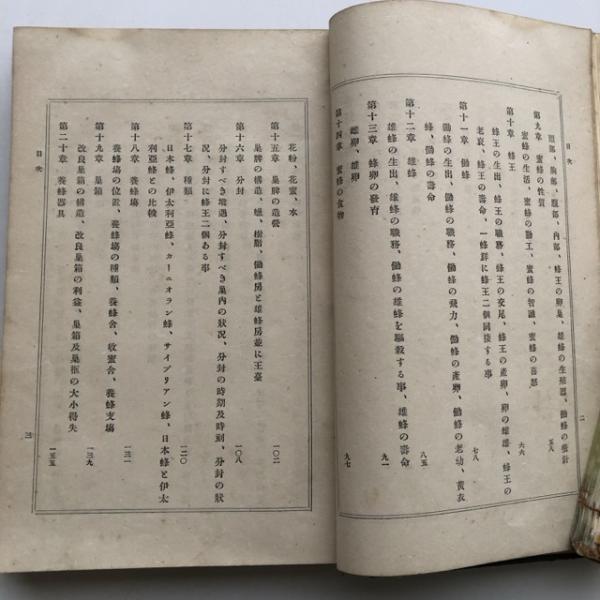 目次
二
頭部、胸部、腹部、内部、蜂王の卵巣、雄蜂の生殖器、働蜂の螫針
第九章 蜜蜂の性質 五八
蜜蜂の生活、蜜蜂の動工、蜜蜂の智識、蜜蜂の喜怒
第十章 蜂王 六六
蜂王の生出、蜂王の職務、蜂王の交尾、蜂王の産卵、卵の雌雄、蜂王の
老衰、蜂王の壽命、一蜂群に蜂王二個同棲する事
第十一章 働蜂 七八
働蜂の生出、働蜂の職務、働蜂の飛力、働蜂の産卵、働蜂の老幼、黄衣
蜂、働蜂の壽命
第十二章 雄蜂 八五
雄蜂の生出、雄蜂の職務、働蜂の雄蜂を驅殺する事、雄蜂の壽命
第十三章 蜂卵の發育 九一
雌卵、雄卵
第十四章 蜜蜂の食物 九七
花粉、花蜜、水
第十五章 巣牌の造營 一〇二
巣牌の構造、蠟、樹脂、働蜂房と雄蜂房並に王臺
第十六章 分封 一〇八
分封すべき境遇、分封すべき巣内の狀況、分封の時期及時刻、分封の狀
況、分封に蜂王二個ある事
第十七章 種類 一二〇
日本蜂、伊太利亞蜂、カーニオラン蜂、サイプリアン蜂、日本蜂と伊太
利亞蜂との比較
第十八章 養蜂場 一三一
養蜂場の位置、養蜂場の種類、養蜂舍、收蜜舍、養蜂支場
第十九章 巣箱 一三九
改良巣箱の構造、改良巣箱の利益、巣箱及巣框の大小得失
第二十章 養蜂器具 一五五
目次
三